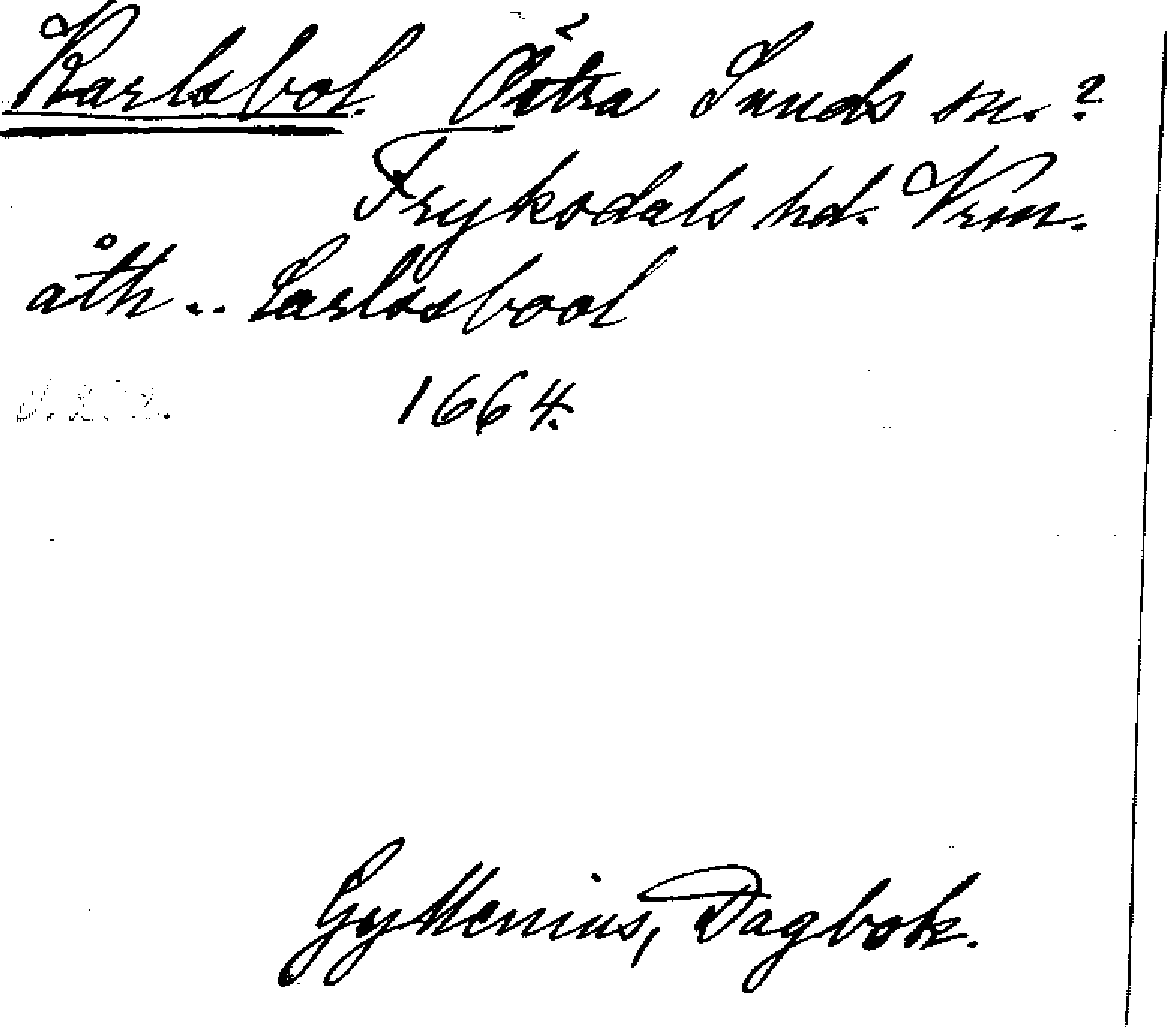 Karlsbol. Östra Sunds sn.?
Fryksdals hd. Vrm.
åth .. Carlssbool
1664.
Gyllenius, Dagbok.